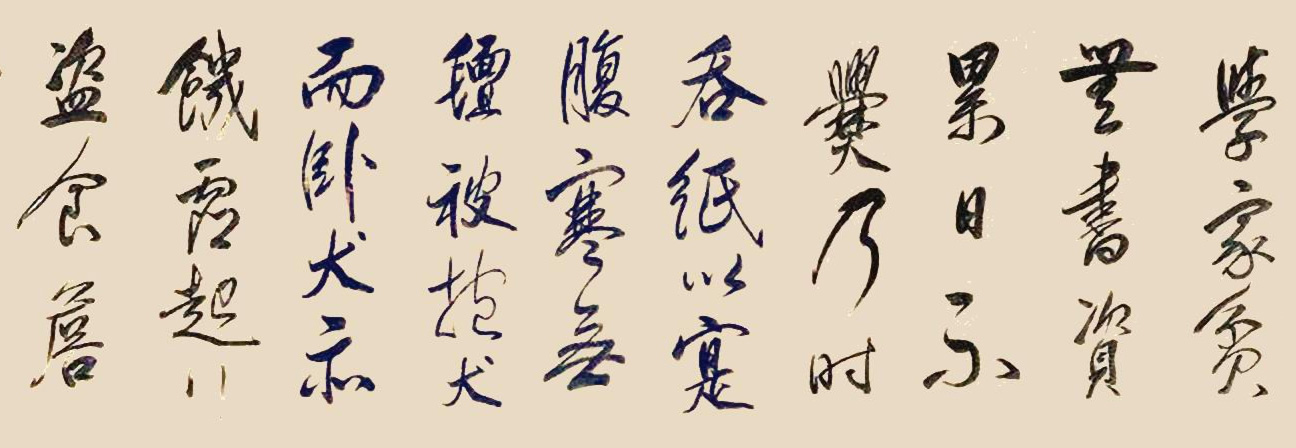 學家貧
無書資
累日不
爨乃时
吞紙以寔
腹寒無
氊被抱犬
而卧犬亦
饑虛起行
盜食詹